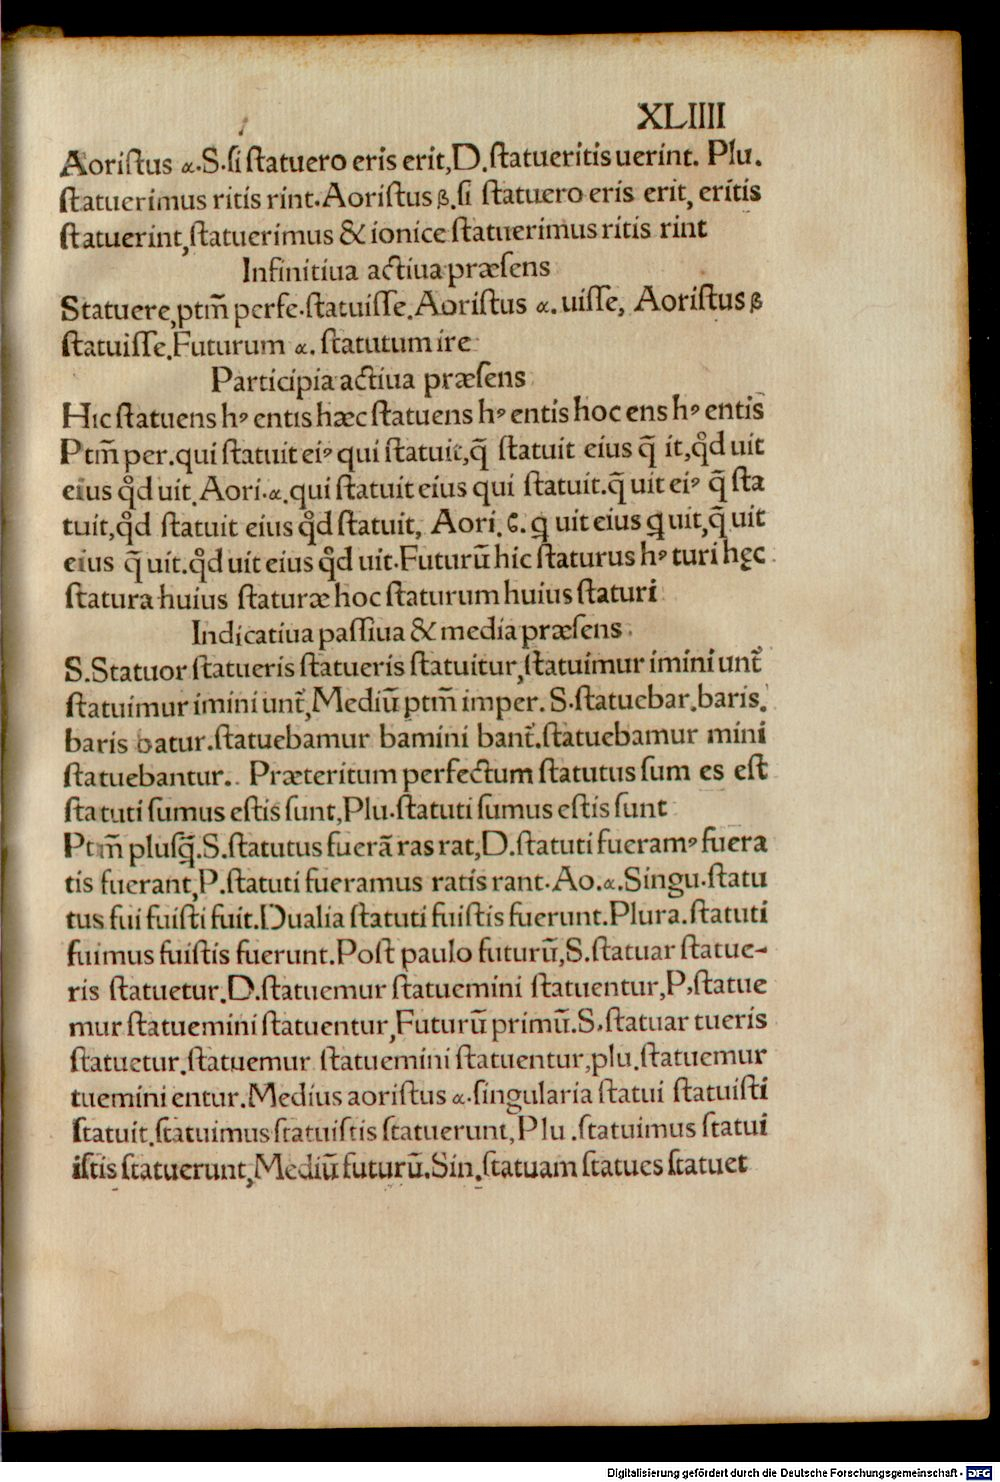 XLIIII
Aoriſtus α.S.ſi ſtatuero eris erit,D.ſtatueritis uerint. Plu.
ſtatuerimus ritis rint.Aoriſtus β.ſi ſtatuero eris erit, eritis
ſtatuerint,ſtatuerimus & ionice ſtatuerimus ritis rint
Infinitiua actiua præſens
Statuere,ptm̃ perfe.ſtatuiſſe.Aoriſtus α. uiſſe, Aoriſtus β
ſtatuiſſe.Futurum α. ſtatutum ire
Participia actiua præſens
Hic ſtatuens hꝰ entis hæc ſtatuens hꝰ entis hoc ens hꝰ entis
Ptm̃ per.qui ſtatuit eiꝰ qui ſtatuit,q̃ ſtatuit eius q̃ it,qͦd uit
eius qͦd uit. Aori.α.qui ſtatuit eius qui ſtatuit.q̃ uit eiꝰ q̃ ſta
tuit,qͦd ſtatuit eius qͦd ſtatuit, Aori. ϐ. q uit eius q uit,q̃ uit
eius q̃ uit.qͦd uit eius qͦd uit.Futurũ hic ſtaturus hꝰ turi hęc
ſtatura huius ſtaturæ hoc ſtaturum huius ſtaturi
Indicatiua paſſiua & media præſens.
S.Statuor ſtatueris ſtatueris ſtatuitur,ſtatuimur imini unt᷑
ſtatuimur imini unt᷑,Mediũ ptm̃ imper. S.ſtatuebar.baris.
baris batur.ſtatuebamur bamini bant᷑.ſtatuebamur mini
ſtatuebantur.. Præteritum perfectum ſtatutus ſum es eſt
ſtatuti ſumus eſtis ſunt,Plu.ſtatuti ſumus eſtis ſunt
Ptm̃ pluſq̃.S.ſtatutus fuerã ras rat,D.ſtatuti fueramꝰ fuera
tis fuerant,P.ſtatuti fueramus ratis rant.Ao.α.Singu.ſtatu
tus fui fuiſti fuit.Dualia ſtatuti fuiſtis fuerunt.Plura.ſtatuti
fuimus fuiſtis fuerunt.Poſt paulo futurũ,S.ſtatuar ſtatue-
ris ſtatuetur.D.ſtatuemur ſtatuemini ſtatuentur,P,ſtatue
mur ſtatuemini ſtatuentur,Futurũ primũ.S,ſtatuar tueris
ſtatuetur.ſtatuemur ſtatuemini ſtatuentur,plu.ſtatuemur
tuemini entur.Medius aoriſtus α.ſingularia ſtatui ſtatuiſti
ſtatuit.ſtatuimus ſtatuiſtis ſtatuerunt,Plu.ſtatuimus ſtatui
iſtis ſtatuerunt,Mediũ futurũ.Sin.ſtatuam ſtatues ſtatuet
Digitalisierung gefördert durch die Deutsche Forschungsgemeinschaft - DFG